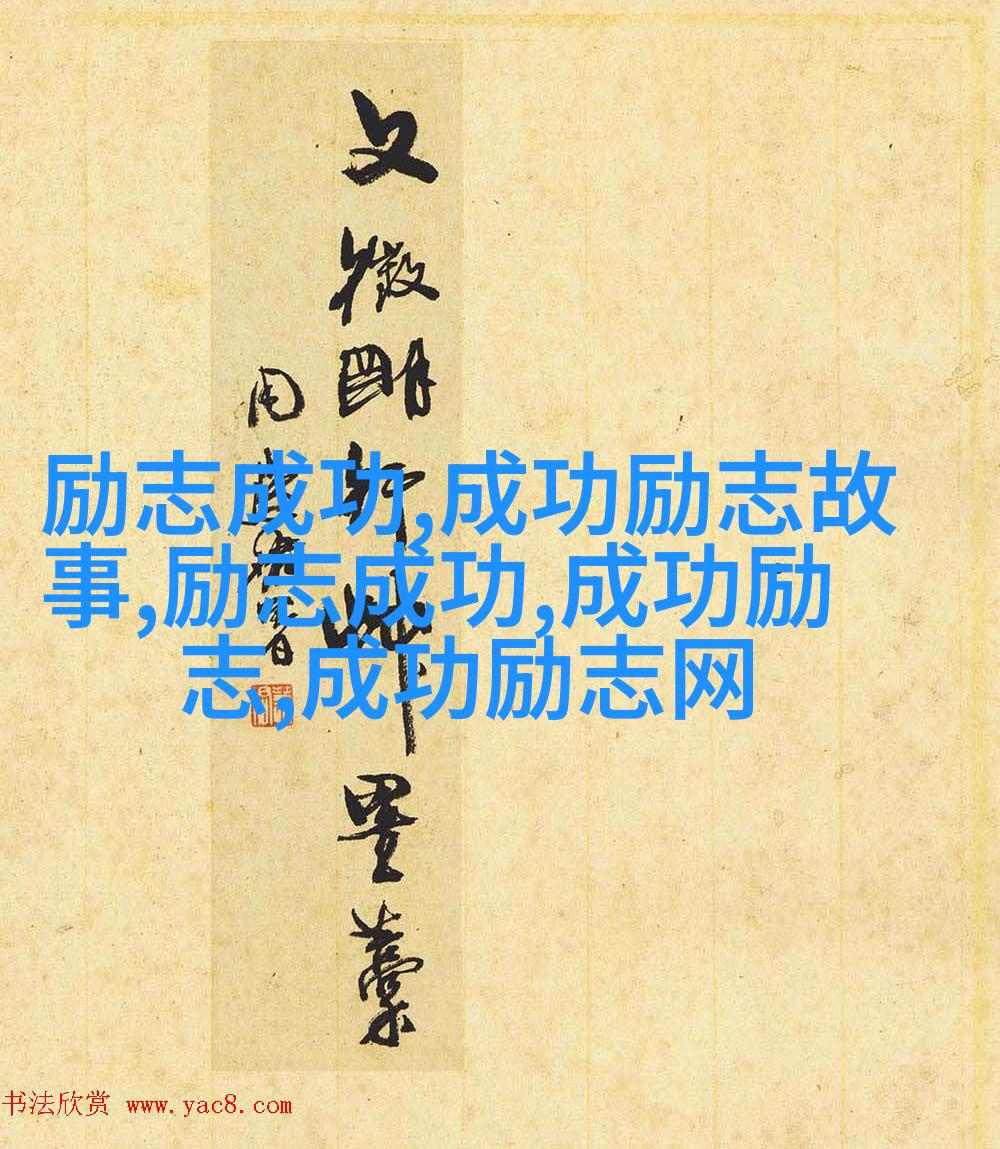 文徵明行草墨藁
周道振署
励志成功,成功励志故
事,励志成功,成功励
志,成功励志网
书法欣赏 www.yac8.com